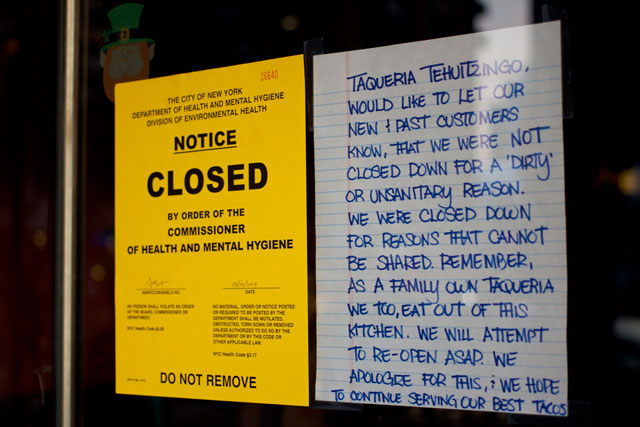 28640
THE CITY OF NEW YORK
DEPARTMENT OF HEALTH AND MENTAL HYGIENE
DIVISION OF ENVIRONMENTAL HEALTH
NOTICE
CLOSED
BY ORDER OF THE
COMMISSIONER
OF HEALTH AND MENTAL HYGIENE
DATE
NO PERSON SHALL VIOLATE AN ORDER
OF THE BOARD, COMMISSIONER OR
DEPARTMENT.
NYC Health Code §3.05
NO MATERIAL, ORDER OR NOTICE POSTED
OR REQUIRED TO BE POSTED BY THE
DEPARTMENT SHALL BE MUTILATED,
OBSTRUCTED, TORN DOWN OR REMOVED
UNLESS AUTHORIZED TO DO SO BY THE
DEPARTMENT OR BY THIS CODE OR
OTHER APPLICABLE LAW.
NYC Health Code §3.17
DO NOT REMOVE
TAQUERIA TEHUITZINGO,
WOULD LIKE TO LET OUR
NEW & PAST CUSTOMERS
KNOW, THAT WE WERE NOT
CLOSED DOWN FOR A 'DIRTY'
OR UNSANITARY REASON.
WE WERE CLOSED DOWN
FOR REASONS THAT CANNOT
BE SHARED. REMEMBER,
AS A FAMILY OWN TAQUERIA
WE TOO, EAT OUT OF THIS
KITCHEN. WE WILL ATTEMPT
TO RE-OPEN ASAP. WE
APOLOGIZE FOR THIS, & WE HOPE
TO CONTINUE SERVING OUR BEST TACOS